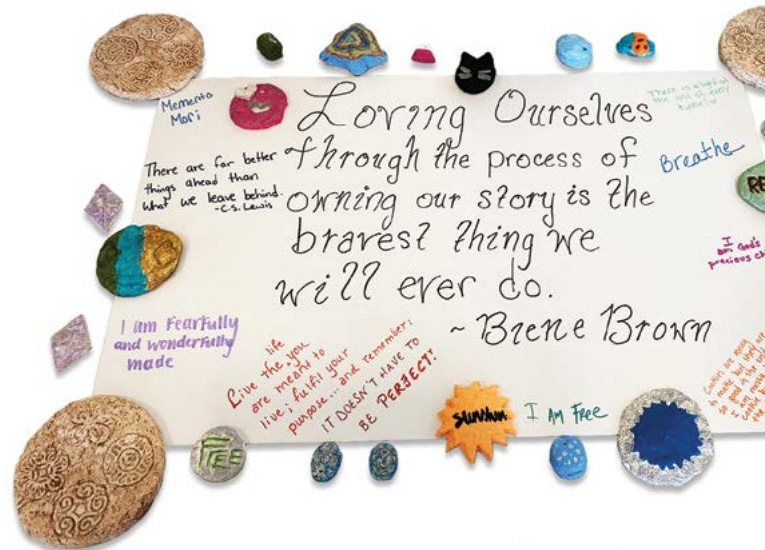 Memento
Mori
Loving Ourselves
through the process of
owning our story is the
bravest thing we
will ever do.
~ Brene Brown
There is a light at
the end of every
tunnel
There are far better
things ahead than
what we leave behind.
-C.S. Lewis
Breathe
RE
I
am God's
precious ch
I am Fearfully
and wonderfully
made
life
Live the you
are meant to
live; fulfil your
purpose... and remember:
IT DOESN'T HAVE TO
BE PERFECT!
sunshine
I AM FREE
FREE